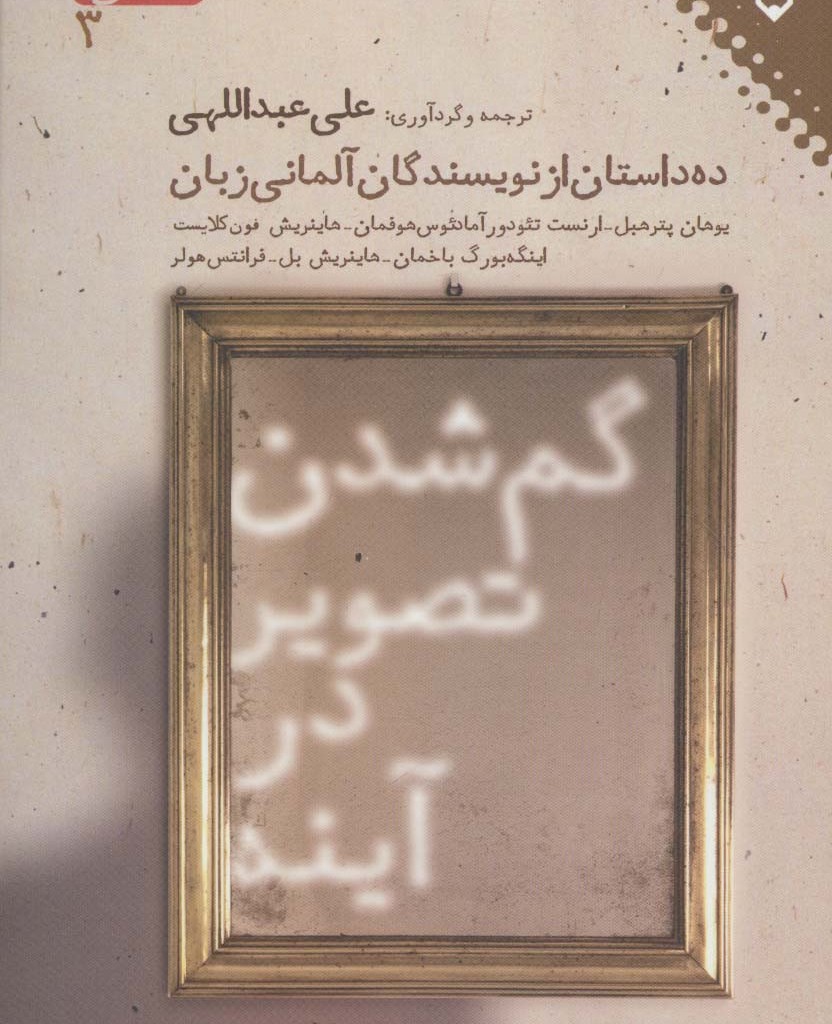 ۳
ترجمه و گردآوری: علی عبداللهی
ده داستان از نویسندگان آلمانی زبان
یوهان پتر هبل - ارنست تئودور آمادئوس هوفمان - هاینریش فون کلایست
اینگه بورگ باخمان - هاینریش بل - فرانتس هولر
گم شدن
تصویر
در
آینه